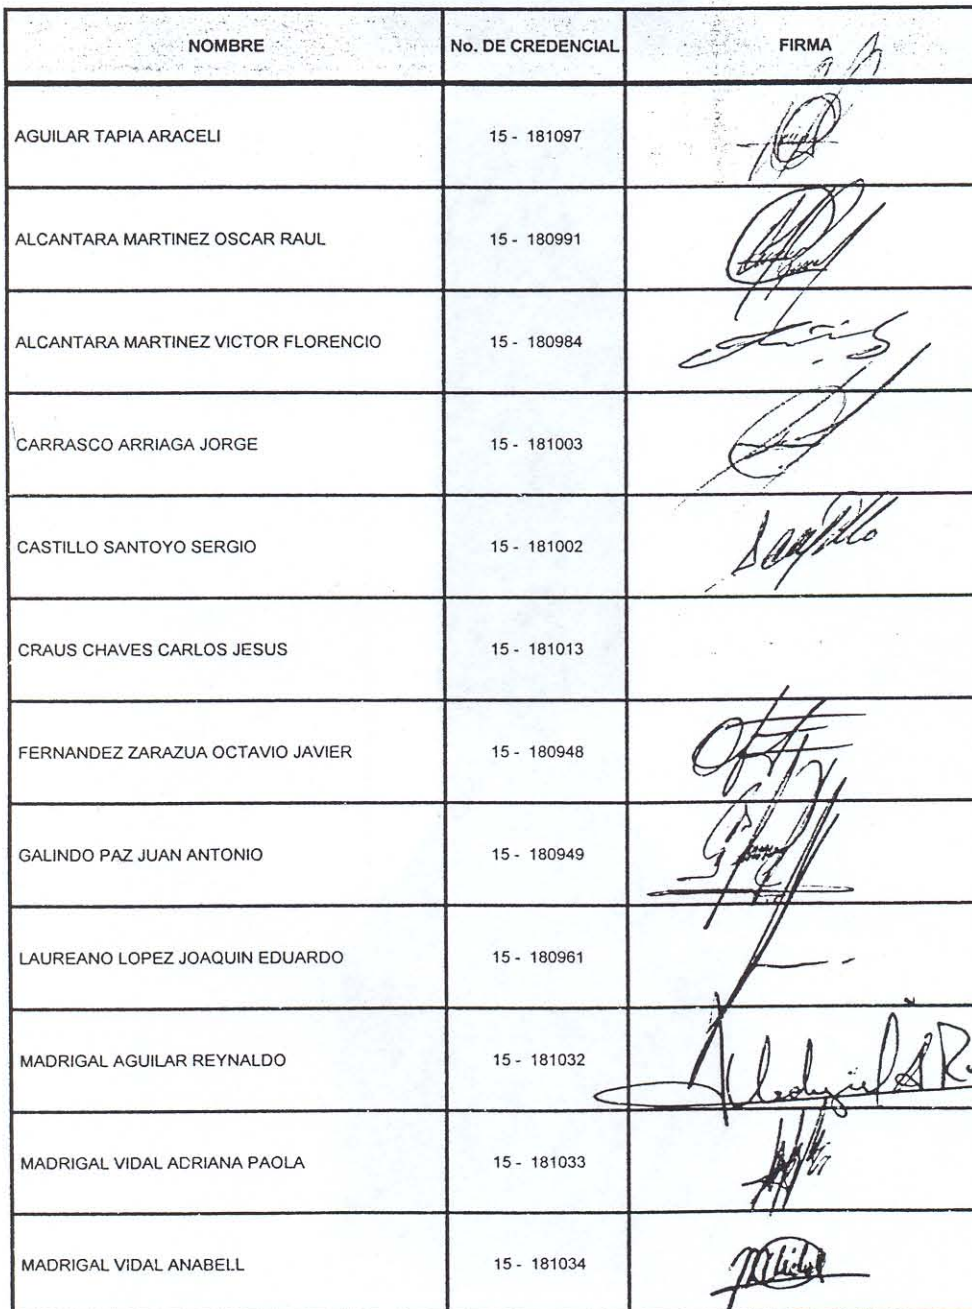 NOMBRE No. DE CREDENCIAL FIRMA
AGUILAR TAPIA ARACELI 15 - 181097
ALCANTARA MARTINEZ OSCAR RAUL 15 - 180991
ALCANTARA MARTINEZ VICTOR FLORENCIO 15 - 180984
CARRASCO ARRIAGA JORGE 15 - 181003
CASTILLO SANTOYO SERGIO 15 - 181002
CRAUS CHAVES CARLOS JESUS 15 - 181013
FERNANDEZ ZARAZUA OCTAVIO JAVIER 15 - 180948
GALINDO PAZ JUAN ANTONIO 15 - 180949
LAUREANO LOPEZ JOAQUIN EDUARDO 15 - 180961
MADRIGAL AGUILAR REYNALDO 15 - 181032
MADRIGAL VIDAL ADRIANA PAOLA 15 - 181033
MADRIGAL VIDAL ANABELL 15 - 181034